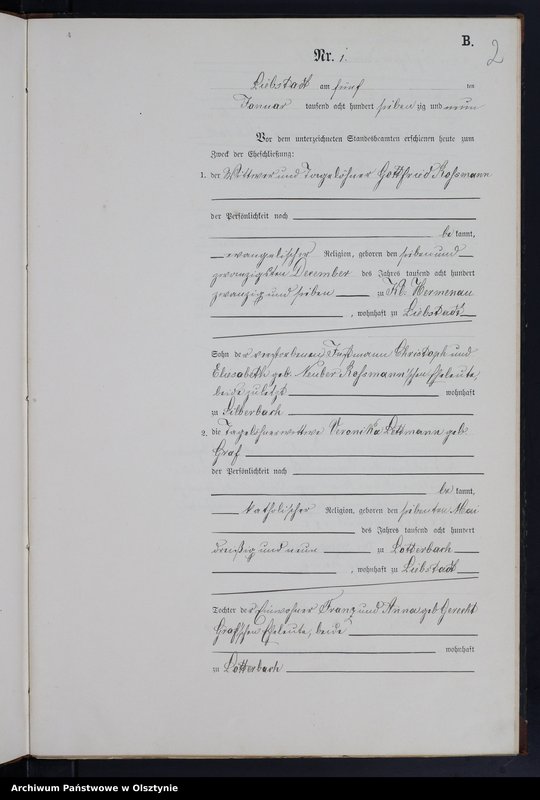 B.
2
Nr. 1.
Liebstadt am fünf ten
Januar tausend acht hundert sieben zig und neun
Vor dem unterzeichneten Standesbeamten erschienen heute zum
Zweck der Eheschließung:
1. der Wittwer und Tagelöhner Gottfried Rossmann
der Persönlichkeit nach
be kannt,
evangelischer Religion, geboren den sieben und
zwanzigsten December des Jahres tausend acht hundert
zwanzig und sieben zu Kl. Hermenau
, wohnhaft zu Liebstadt
Sohn der verstorbenen Instmann Christoph und
Elisabeth geb. Neuber Rossmann'schen Eheleute,
beide zuletzt wohnhaft
zu Silberbach
2. die Tagelöhnerwittwe Veronika Lettmann geb.
Graf
der Persönlichkeit nach
be kannt,
katholischer Religion, geboren den siebenten Mai
des Jahres tausend acht hundert
dreißig und neun zu Lotterbach
, wohnhaft zu Liebstadt
Tochter der Einwohner Franz und Anna geb. Gerecht
Graf'schen Eheleute, beide
wohnhaft
zu Lotterbach
Archiwum Państwowe w Olsztynie